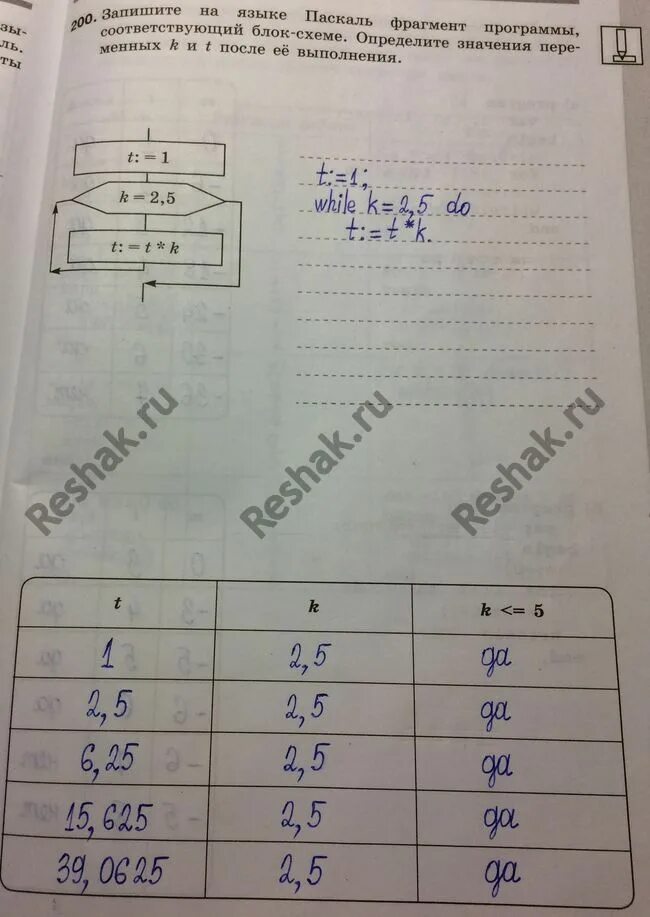 зы-
ль.
ты
200. Запишите на языке Паскаль фрагмент программы,
соответствующий блок-схеме. Определите значения пере-
менных k и t после её выполнения.
t: = 1
k = 2,5
t: = t * k
t:=1;
while k=2,5 do
t:=t*k.
Reshak.ru
Reshak.ru
Reshak.ru
t k k <= 5
1 2,5 да
2,5 2,5 да
6,25 2,5 да
15,625 2,5 да
39,0625 2,5 да